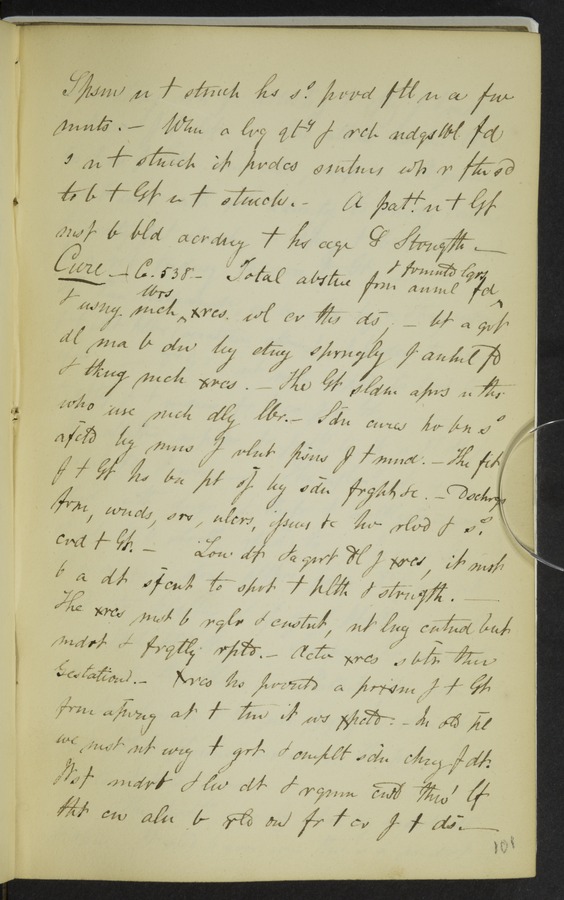 Spsm n † stmch hs so. provd ftl n a fw
mnts. — Whn a lrg qty f rch ndgstbl fd
s n † stmch it prdcs smtms wh r
to b † Gt n † stmch. — A patt. n † Gt
mst b bld acrdng † hs age & Strength —
Cure — C. 538 — Total abstne frm anml fd & frmntd lqrs
& usng mch lbrs xrcs. wl cr ths ds, — bt a grt
dl ma b dn by etng sprngly f anml fd
& tkng mch xrcs. — The Gt sldm aprs n ths
who use mch dly lbr. — Sdn cures hv bn so
afctd by mns f vlnt psns f † mnd. — The fit
f † Gt hs bn pt of by sdn frght &c. — Dschrgs
frm, wnds, srs, ulcrs, issues &c hv rlvd & so.
crd † Gt. — Low dt & a grt dl f xrcs, it mst
b a dt sfcnt to sprt † hlth & strngth. —
The xrcs mst b rglr & cnstnt, nt lng cntnd but
mdrt & frqtly rptd. — Actv xrcs s btr thn
Gestation. — Xrcs hs prvntd a prxsm f † Gt
frm apring at † tm it ws xpctd: — In old pl
we mst nt urg † grt & cmplt sdn chng f dt.
Mst mdrt & lw dt & rgmn
tht cn aln b rld on fr † cr f † ds. —
101